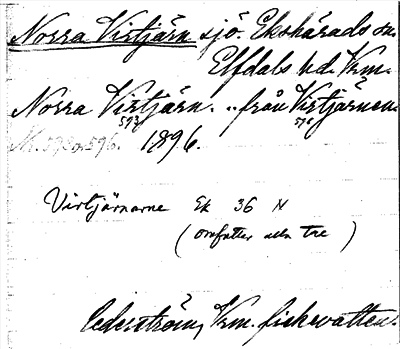 Norra Virtjärn sjö. Ekshärads sn.
Elfdals hd. Vrm.
Norra Virtjärn. .. från Virtjärnen.
593 596
N. 593 o. 596. 1896.
Virtjärnarne Ek 36 N
(omfatter alla tre)
Cederström, Vrm. fiskevatten.